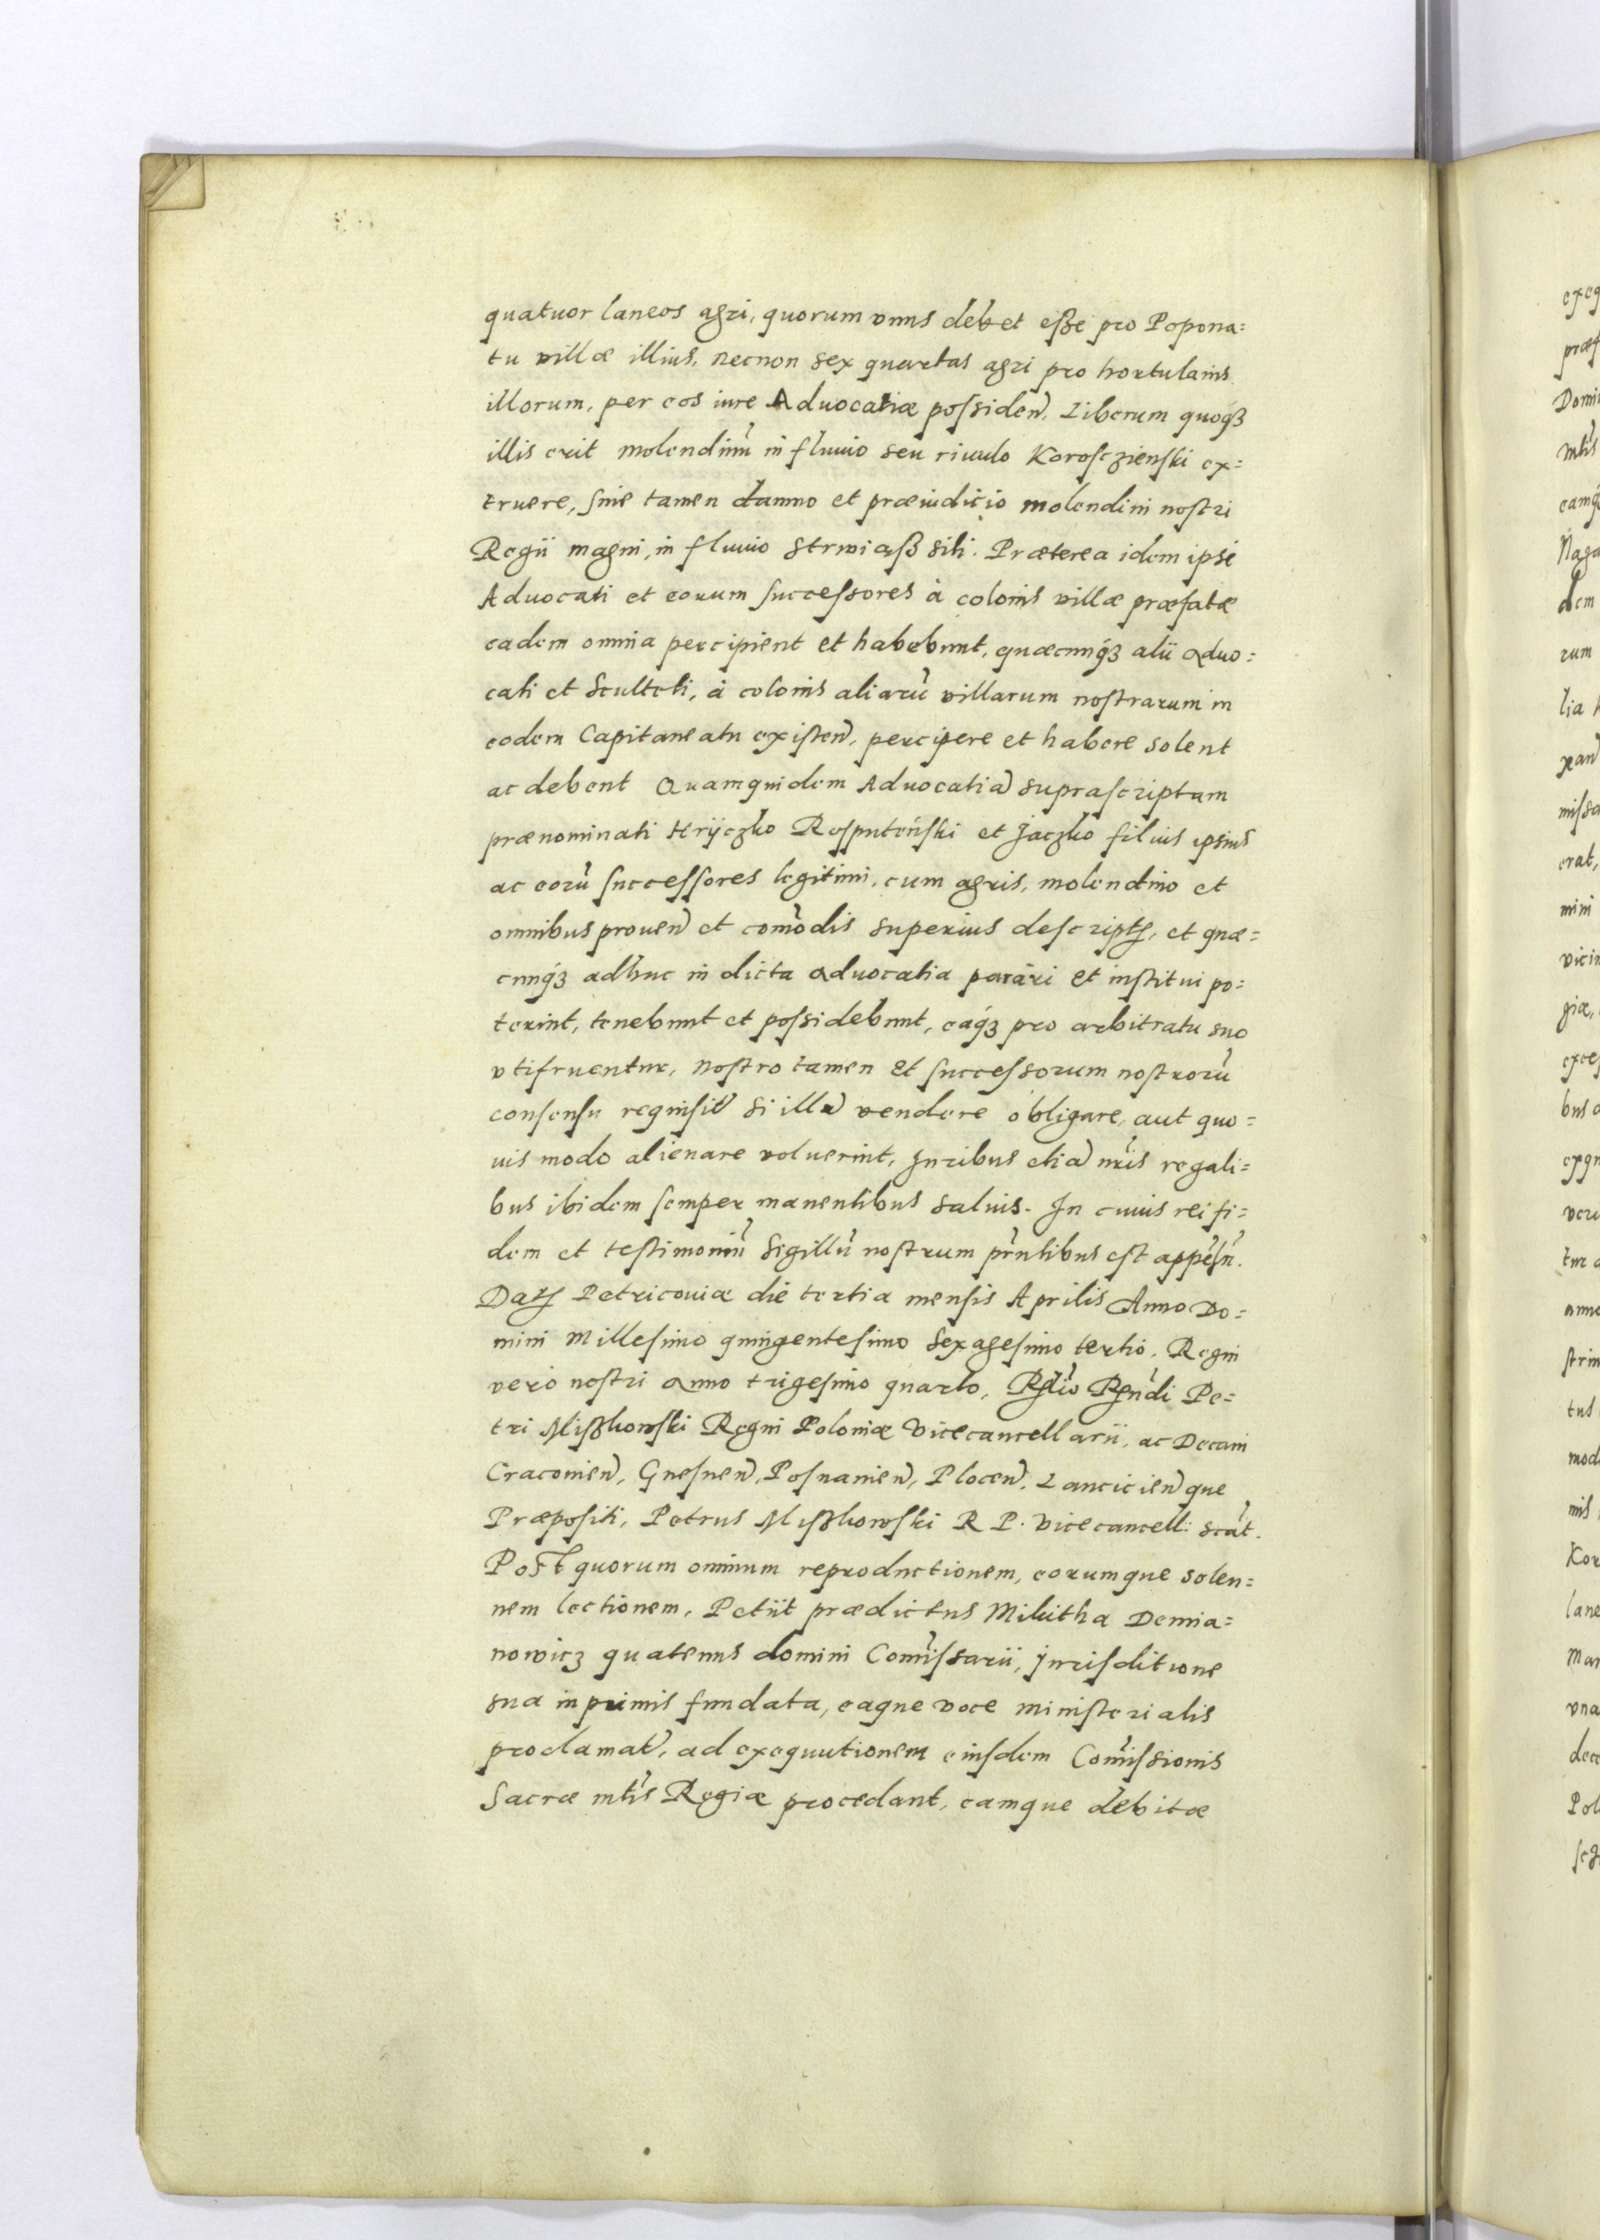 quatuor laneos agri, quorum vnus debet eße pro Popona=
tu villæ illius, necnon sex quartas agri pro hortulanis
illorum, per eos iure Aduocatiæ possiden̄. Liberum quoq́ꝫ
illis erit molendinū in fluuio seu riuulo Korosczienski ex=
truere, sine tamen damno et præiudicio molendini nostri
Regii magni, in fluuio Strwiaß siti. Præterea idem ipsi
Aduocati et eorum successores à colonis villæ præfatæ
eadem omnia percipient et habebunt, quæcunq́ꝫ alii aduo=
cati et Sculteti, à colonis aliarū villarum nostrarum in
eodem Capitaneatu existen̄, percipere et habere solent
ac debent Quamquidem Aduocatiā suprascriptam
prænominati Hrÿczko Rosputeński et Jaczko filius ipsius
ac eorū successores legitimi, cum agris, molendino et
omnibus prouen̄ et com̄odis superius descriptꝭ, et quæ=
cunq́ꝫ adhuc in dicta aduocatia parari et institui po=
terint, tenebunt et possidebunt, eaq́ꝫ pro arbitratu suo
vtifruentur, nostro tamen et successorum nostrorū
consensu requisit̄ si illā vendere obligare, aut quo=
uis modo alienare voluerint, Juribus etiā nr̄is regali=
bus ibidem semper manentibus saluis. In cuius rei fi=
dem et testimoniū Sigillū nostrum pr̄ntibus est appēsū.
Datꝭ Petricouiæ die tertia mensis Aprilis Anno Do=
mini Millesimo quingentesimo Sexagesimo tertio. Regni
vero nostri anno trigesimo quarto. Rel̄io Reūndi Pe=
tri Mißkowski Regni Poloniæ Vicecancellarii, ac Decani
Cracouien̄, Gnesnen̄, Posnanien̄, Plocen̄, Lancicien̄que
Præpositi, Petrus Mißkowski R P. Vicecancell: scāt.
Post quorum omnium reproductionem, eorumque solen=
nem lectionem, Petiit prædictus Mikitha Demia=
nowicz quatenus domini Com̄issarii, jurisditione
sua inprimis fundata, eaque voce ministerialis
proclamat̄, ad exequutionem eiusdem Com̄issionis
Sacræ mt̄is Regiæ procedant, eamque debitæ